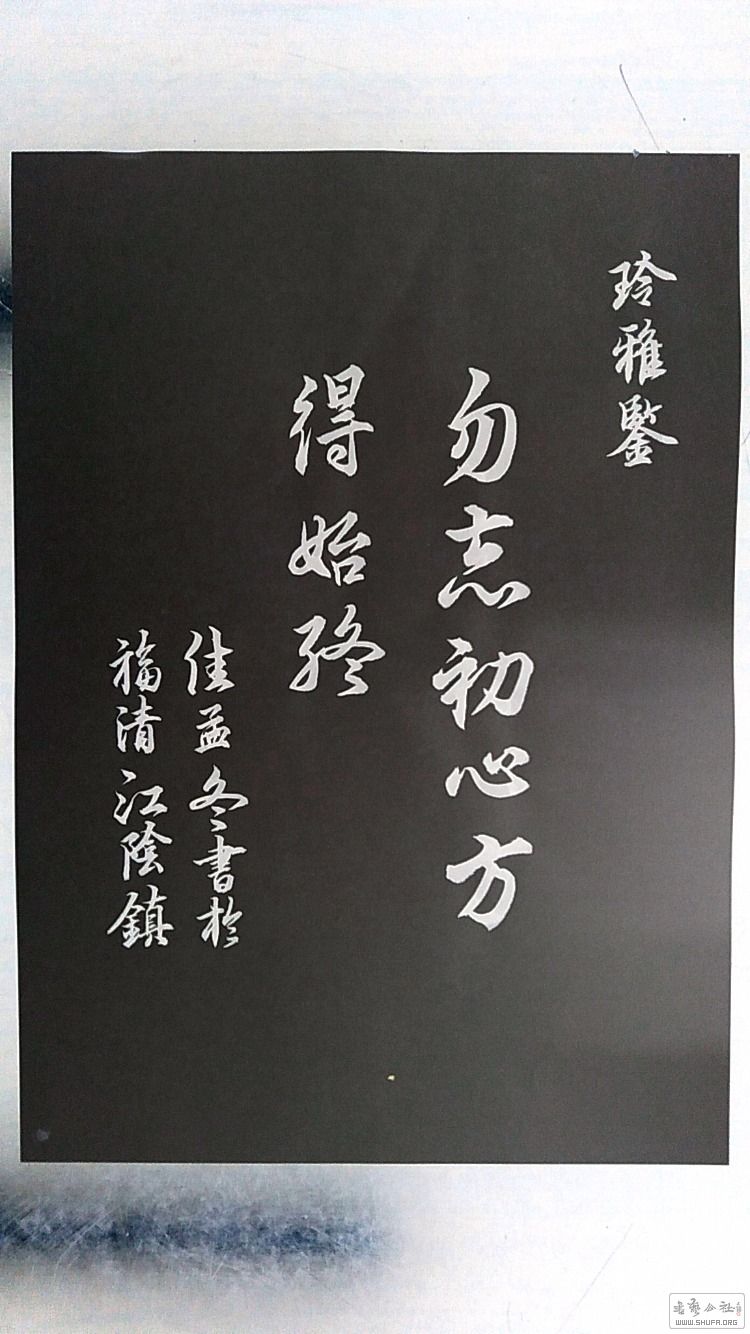 玲雅鑒
勿志初心方
得始終
佳益冬書於
福清江陰鎮
书艺公社
WWW.SHUFA.ORG